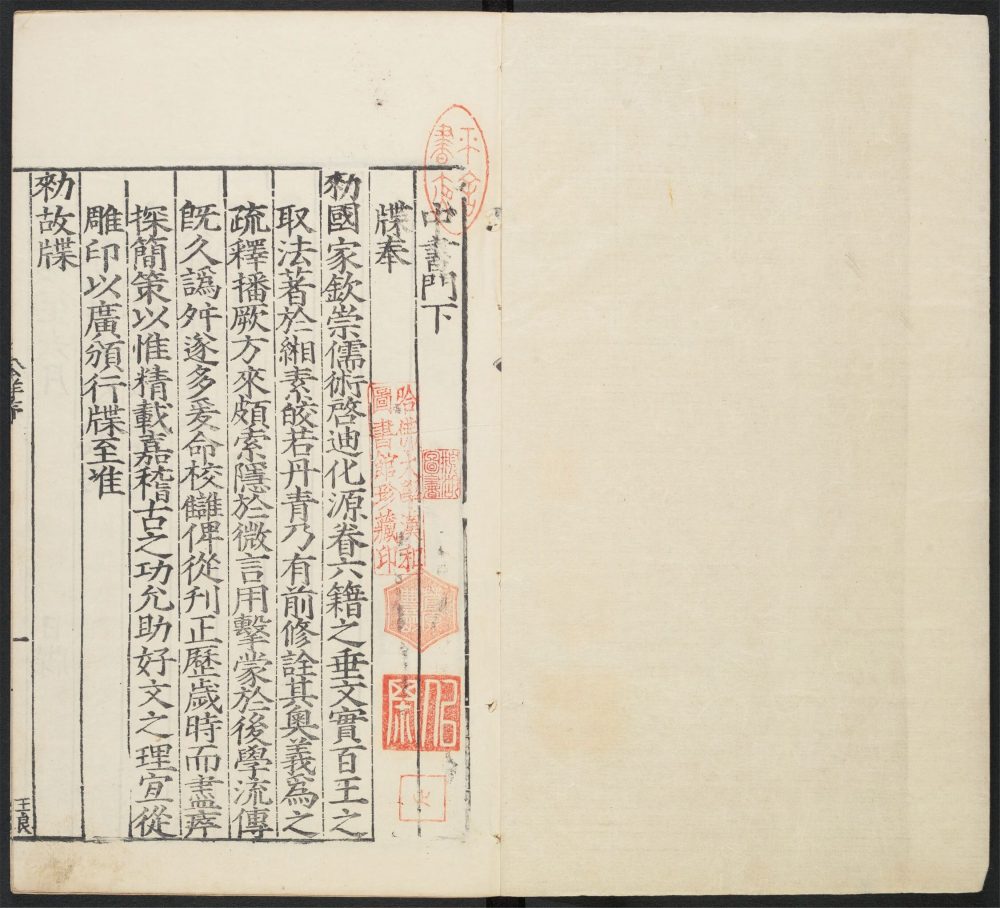 中書門下
牒奉
勑國家欽崇儒術啓迪化源眷六籍之垂文實百王之
取法著於緗素皎若丹青乃有前修詮其奧義爲之
疏釋播厥方來頗索隱於微言用擊蒙於後學流傳
旣久譌舛遂多爰命校讎俾從刋正歷歲時而盡瘁
探簡策以惟精載嘉稽古之功允助好文之理宜從
雕印以廣頒行牒至准
勑故牒
一
王良
哈佛大學漢和
圖書館珍藏印